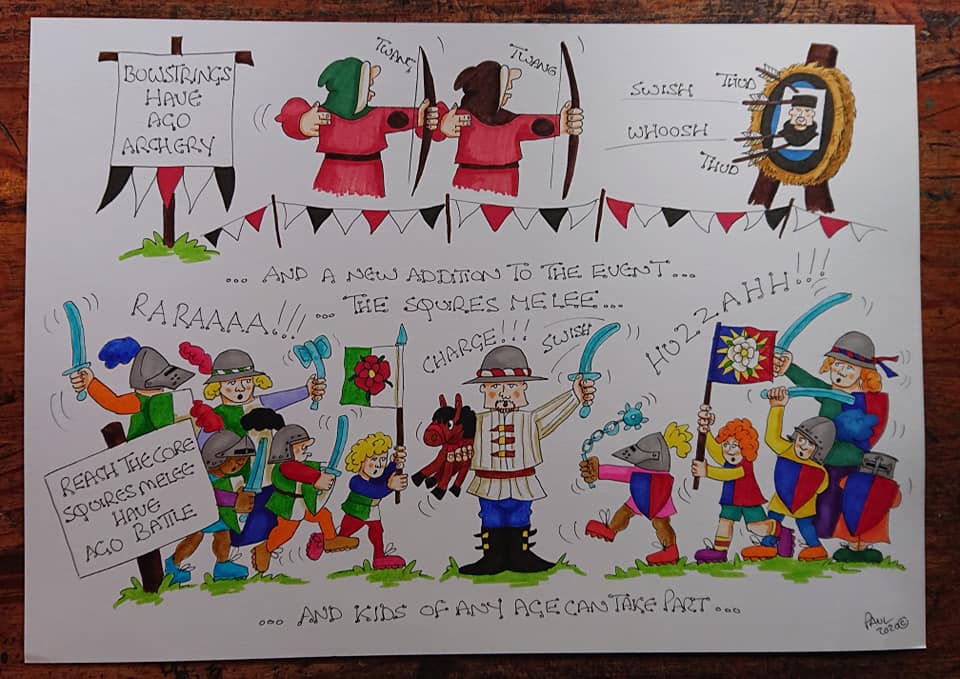 BOWSTRINGS
HAVE
AGO
ARCHERY
TWANG
TWANG
SWISH
THUD
WHOOSH
THUD
... AND A NEW ADDITION TO THE EVENT...
... THE SQUIRES MELEE...
RARAAAA!!!
CHARGE!!!
SWISH
HUZZAHH!!!
REACH THE CORE
SQUIRES MELEE
HAVE
AGO BATTLE
... AND KIDS OF ANY AGE CAN TAKE PART...
PAUL
2020©